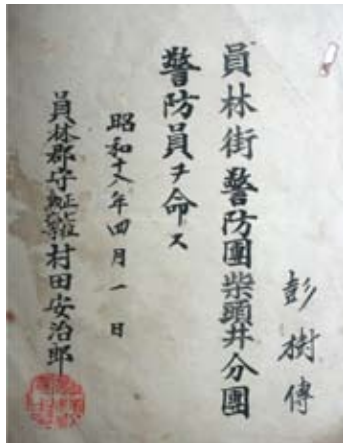 彭樹傳
員林街警防團柴頭井分團
警防員ヲ命ス
昭和十八年四月一日
員林郡守 村田安治郎